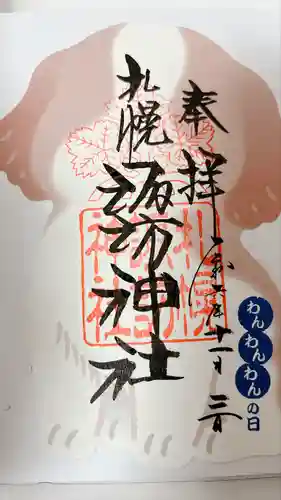 奉拝
十一月三日
札幌
諏訪神社
札幌
諏訪
神社
わんわんわんの日